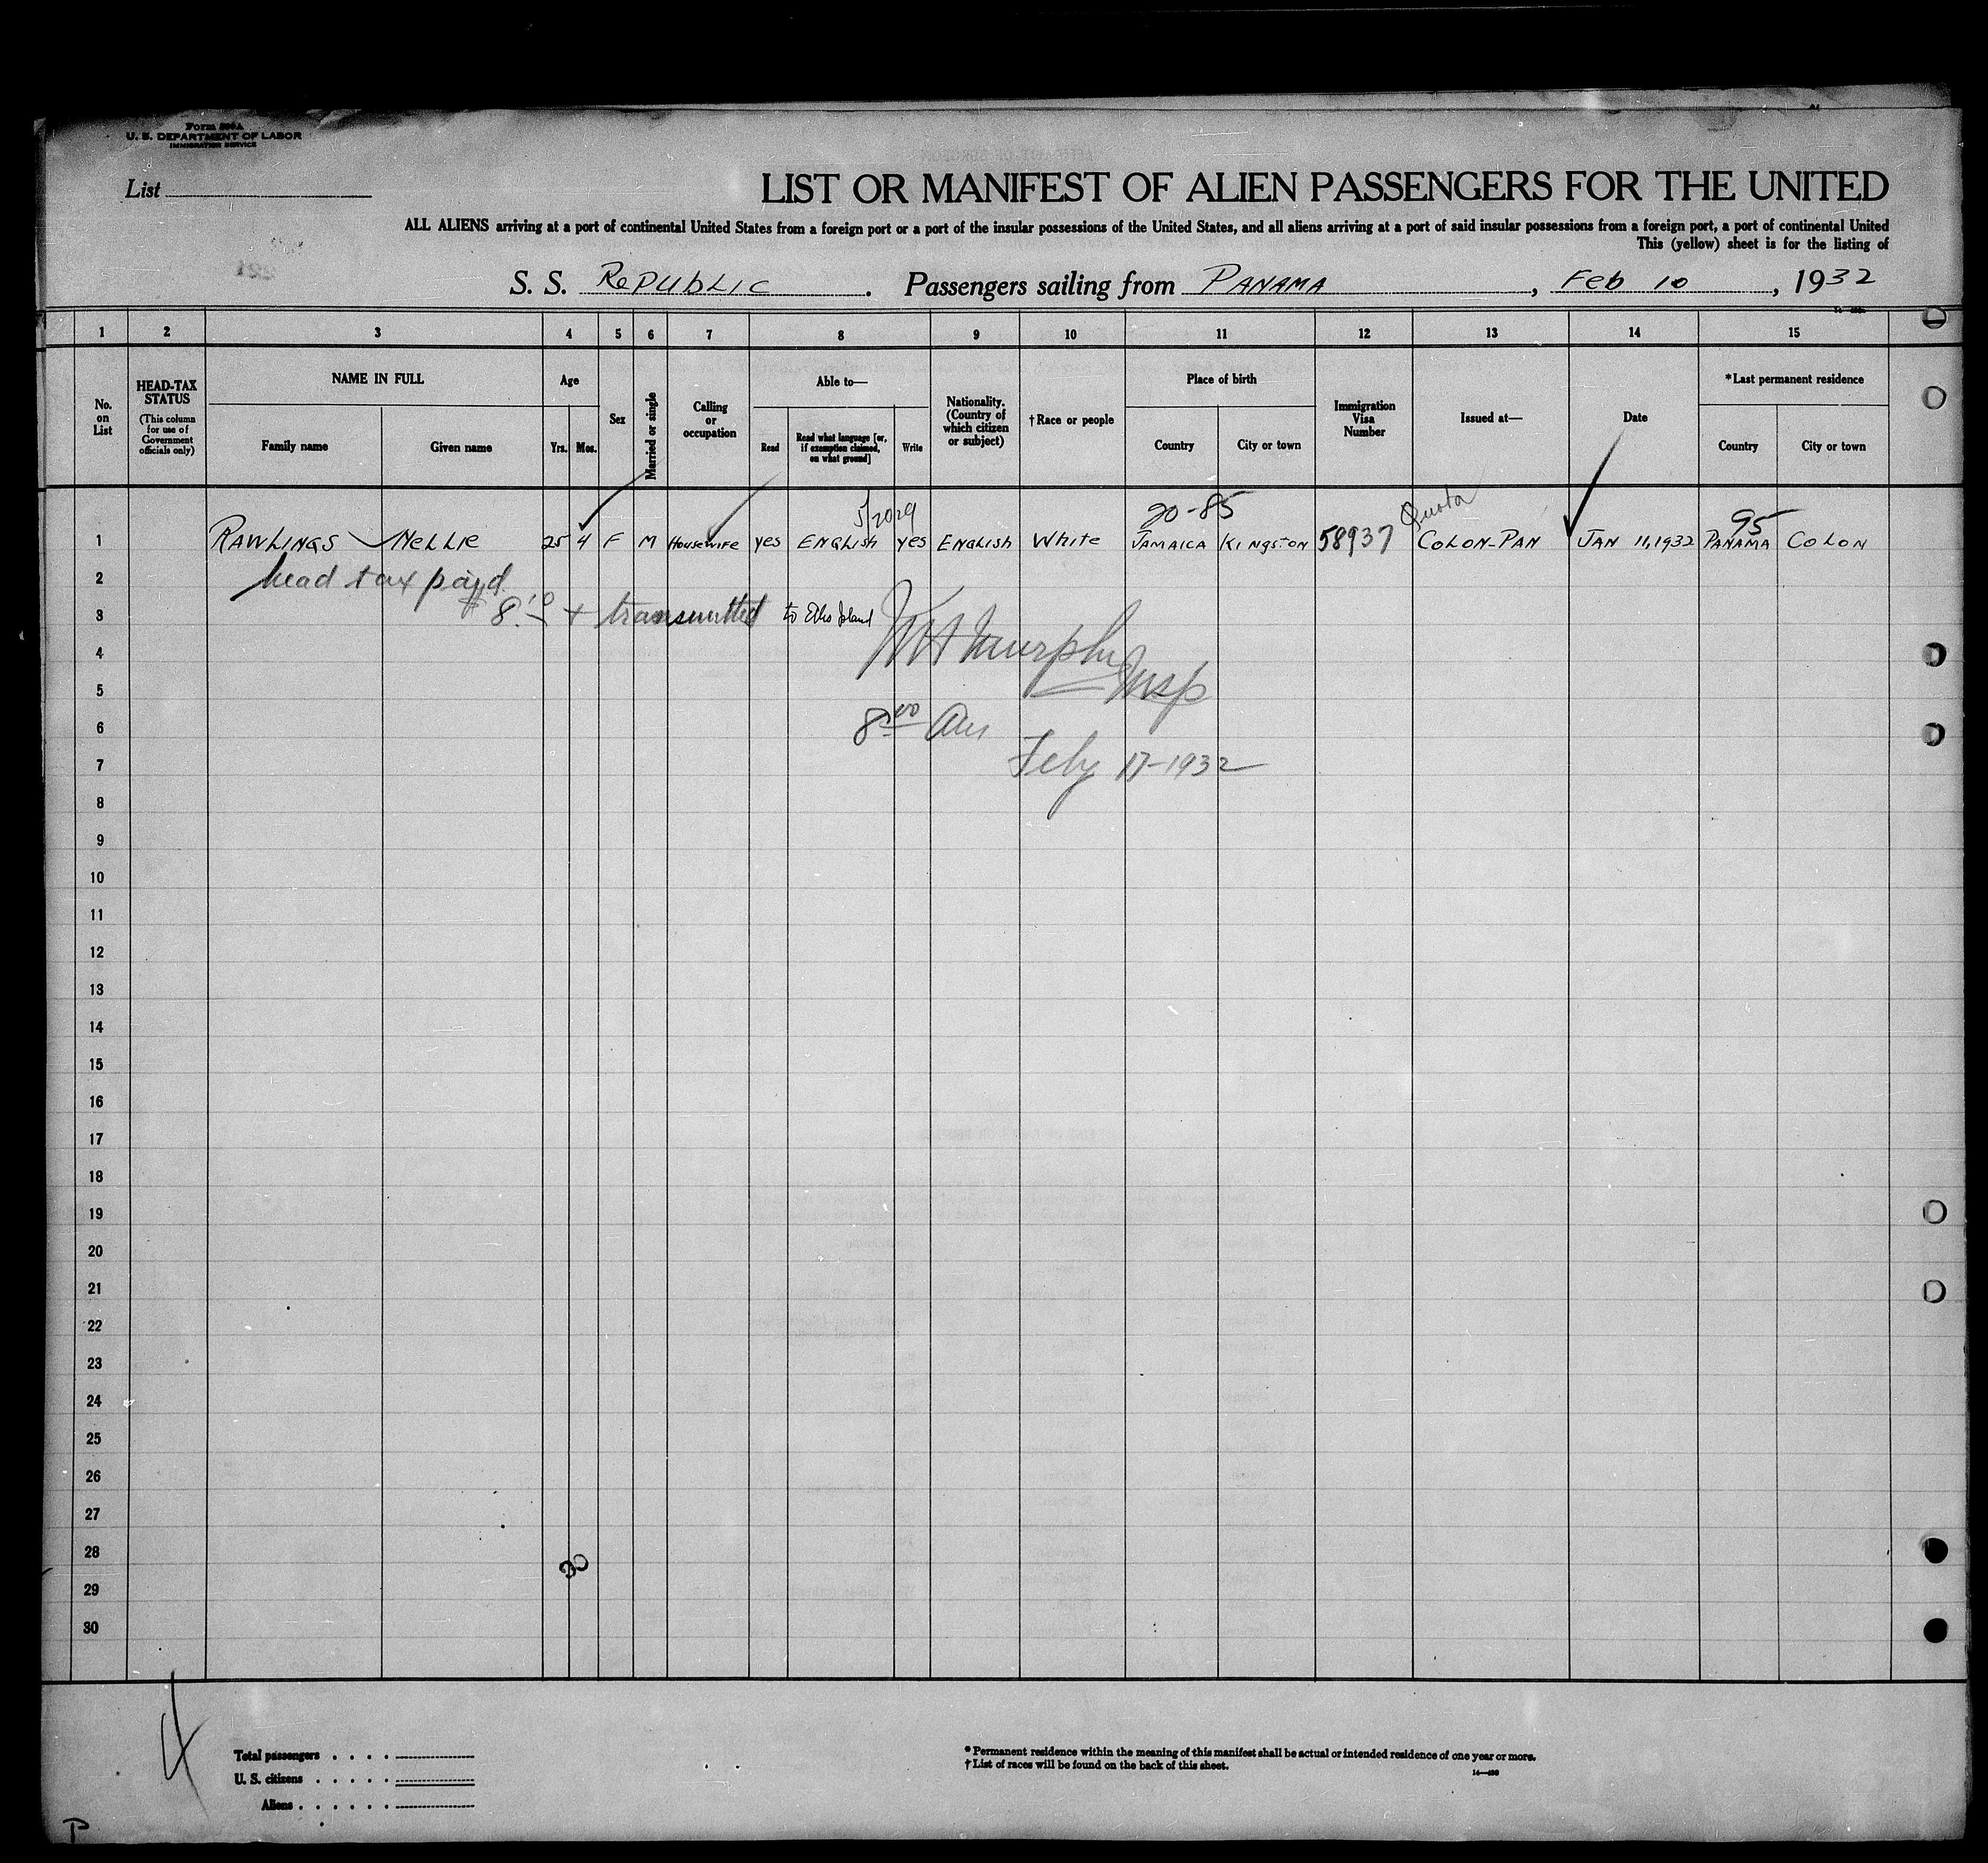 Form 500A
U. S. DEPARTMENT OF LABOR
IMMIGRATION SERVICE
List
LIST OR MANIFEST OF ALIEN PASSENGERS FOR THE UNITED
ALL ALIENS arriving at a port of continental United States from a foreign port or a port of the insular possessions of the United States, and all aliens arriving at a port of said insular possessions from a foreign port, a port of continental United
This (yellow) sheet is for the listing of
S. S. REPUBLIC. Passengers sailing from PANAMA, Feb 10, 1932
1 2 3 4 5 6 7 8 9 10 11 12 13 14 15
No. on List
HEAD-TAX STATUS
(This column for use of Government officials only)
NAME IN FULL
Family name
Given name
Age
Yrs. Mos.
Sex
Married or single
Calling or occupation
Able to—
Read
Read what language [or, if exemption claimed, on what ground]
Write
Nationality. (Country of which citizen or subject)
†Race or people
Place of birth
Country
City or town
Immigration Visa Number
Issued at—
Date
*Last permanent residence
Country
City or town
20-85
Quota
95
1 RAWLINGS NELLIE 25 4 F M HOUSEWIFE yes ENGLISH yes ENGLISH White JAMAICA KINGSTON 58937 COLON-PAN JAN 11, 1932 PANAMA COLON
2 head tax paid
3 + transmitted to Ellis Island
4 Murphy
5 Insp
6 8 00 Am
7 Feby 17-1932
8
9
10
11
12
13
14
15
16
17
18
19
20
21
22
23
24
25
26
27
28
29
30
30
Total passengers
U. S. citizens
Aliens
* Permanent residence within the meaning of this manifest shall be actual or intended residence of one year or more.
† List of races will be found on the back of this sheet.
P